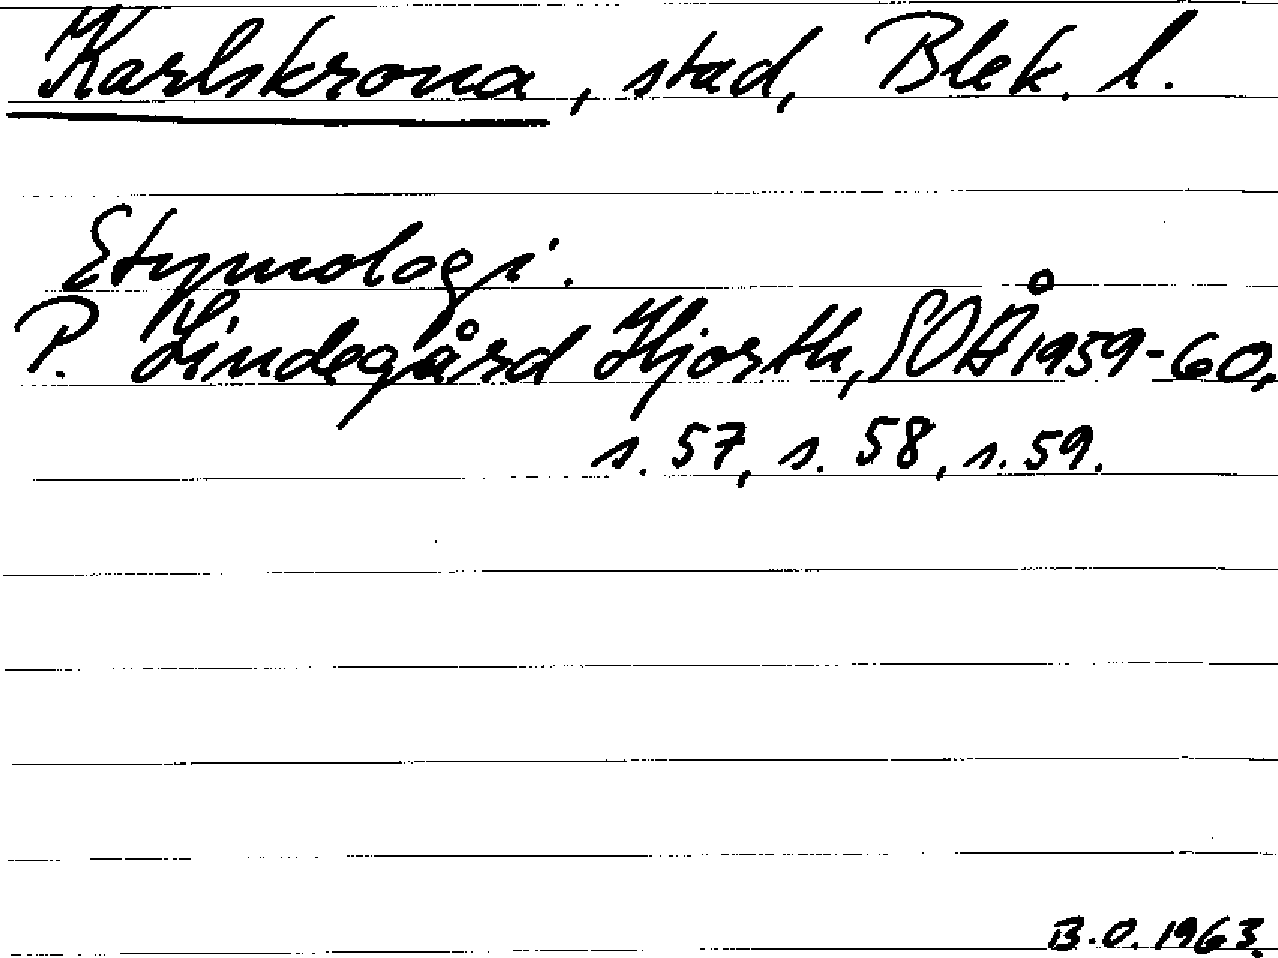 Karlskrona, stad, Blek. l.
Etymologi.
P. Lindegård Hjorth, SOÅ 1959-60,
s. 57, s. 58, s. 59.
B.O. 1963.